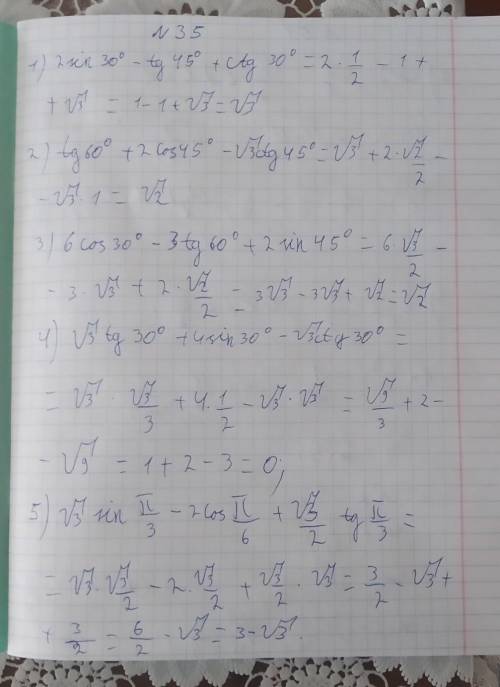 №35
1) 2sin30° - tg45° + ctg30° = 2·1/2 - 1 +
+ √3 = 1-1+√3 = √3
2) tg60° + 2cos45° - √3ctg45° = √3 + 2·√2/2 -
- √3·1 = √2
3) 6cos30° - 3tg60° + 2sin45° = 6·√3/2 -
- 3·√3 + 2·√2/2 = 3√3 - 3√3 + √2 = √2
4) √3 tg30° + 4sin30° - √3ctg30° =
= √3 · √3/3 + 4·1/2 - √3·√3 = √9/3 + 2 -
- √9 = 1 + 2 - 3 = 0;
5) √3 sin π/3 - 2cos π/6 + √3/2 tg π/3 =
= √3·√3/2 - 2·√3/2 + √3/2 · √3 = 3/2 - √3 +
+ 3/2 = 6/2 - √3 = 3-√3.